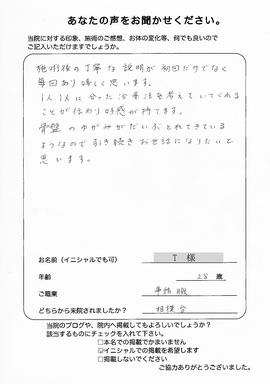 あなたの声をお聞かせください。
当院に対する印象、施術のご感想、お体の変化等、何でも良いので
ご記入いただけますでしょうか。
施術後の丁寧な説明が初回だけでなく
毎回あり嬉しく思います。
1人1人に合った治療法を考えていてくれる
ことが伝わり好感が持てます。
骨盤のゆがみがだいぶとれてきている
ようなので引き続きお世話になりたいと
思います。
お名前(イニシャルでも可) T 様
年齢 28 歳
ご職業 事務職
どちらから来院されましたか?
当院のブログや、院内へ掲載してもよろしいでしょうか?
該当するものにチェックを入れて下さい。
□本名での掲載でかまいません
☑イニシャルでの掲載を希望します
□掲載しないでください
ご協力ありがとうございました。